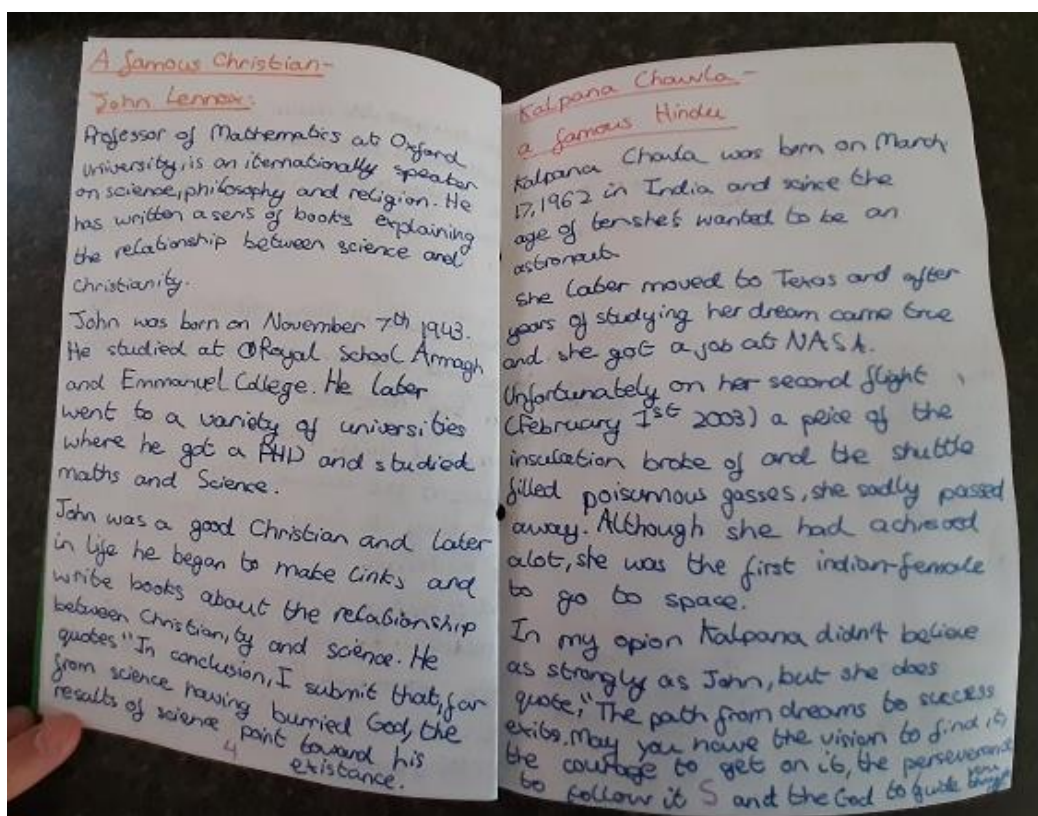 A famous Christian-
John Lennox:
Professor of Mathematics at Oxford
university, is an iternationally speaker
on science, philosophy and religion. He
has written a seris of books explaining
the relationship between science and
Christianity.
John was born on November 7th 1943.
He studied at Royal School Armagh
and Emmanuel College. He later
went to a variety of universities
where he got a PHD and studied
maths and Science.
John was a good Christian and later
in life he began to make links and
write books about the relationship
between Christianity and science. He
quotes "In conclusion, I submit that, far
from science having burried God, the
results of science point toward his
existance.
4
Kalpana Chawla -
a famous Hindu
Kalpana Chawla was born on March
17, 1962 in India and since the
age of ten she's wanted to be an
astronaut.
She later moved to Texas and after
years of studying her dream came true
and she got a job at NASA.
Unfortunately on her second flight
(February 1st 2003) a peice of the
insulation broke of and the shuttle
filled poisunnous gasses, she sadly passed
away. Although she had achieved
alot, she was the first indian-female
to go to space.
In my opion Kalpana didn't believe
as strongly as John, but she does
quote, "The path from dreams to success
exits. May you have the vision to find it,
the courage to get on it, the perseverance
to follow it and the God to guide you
5